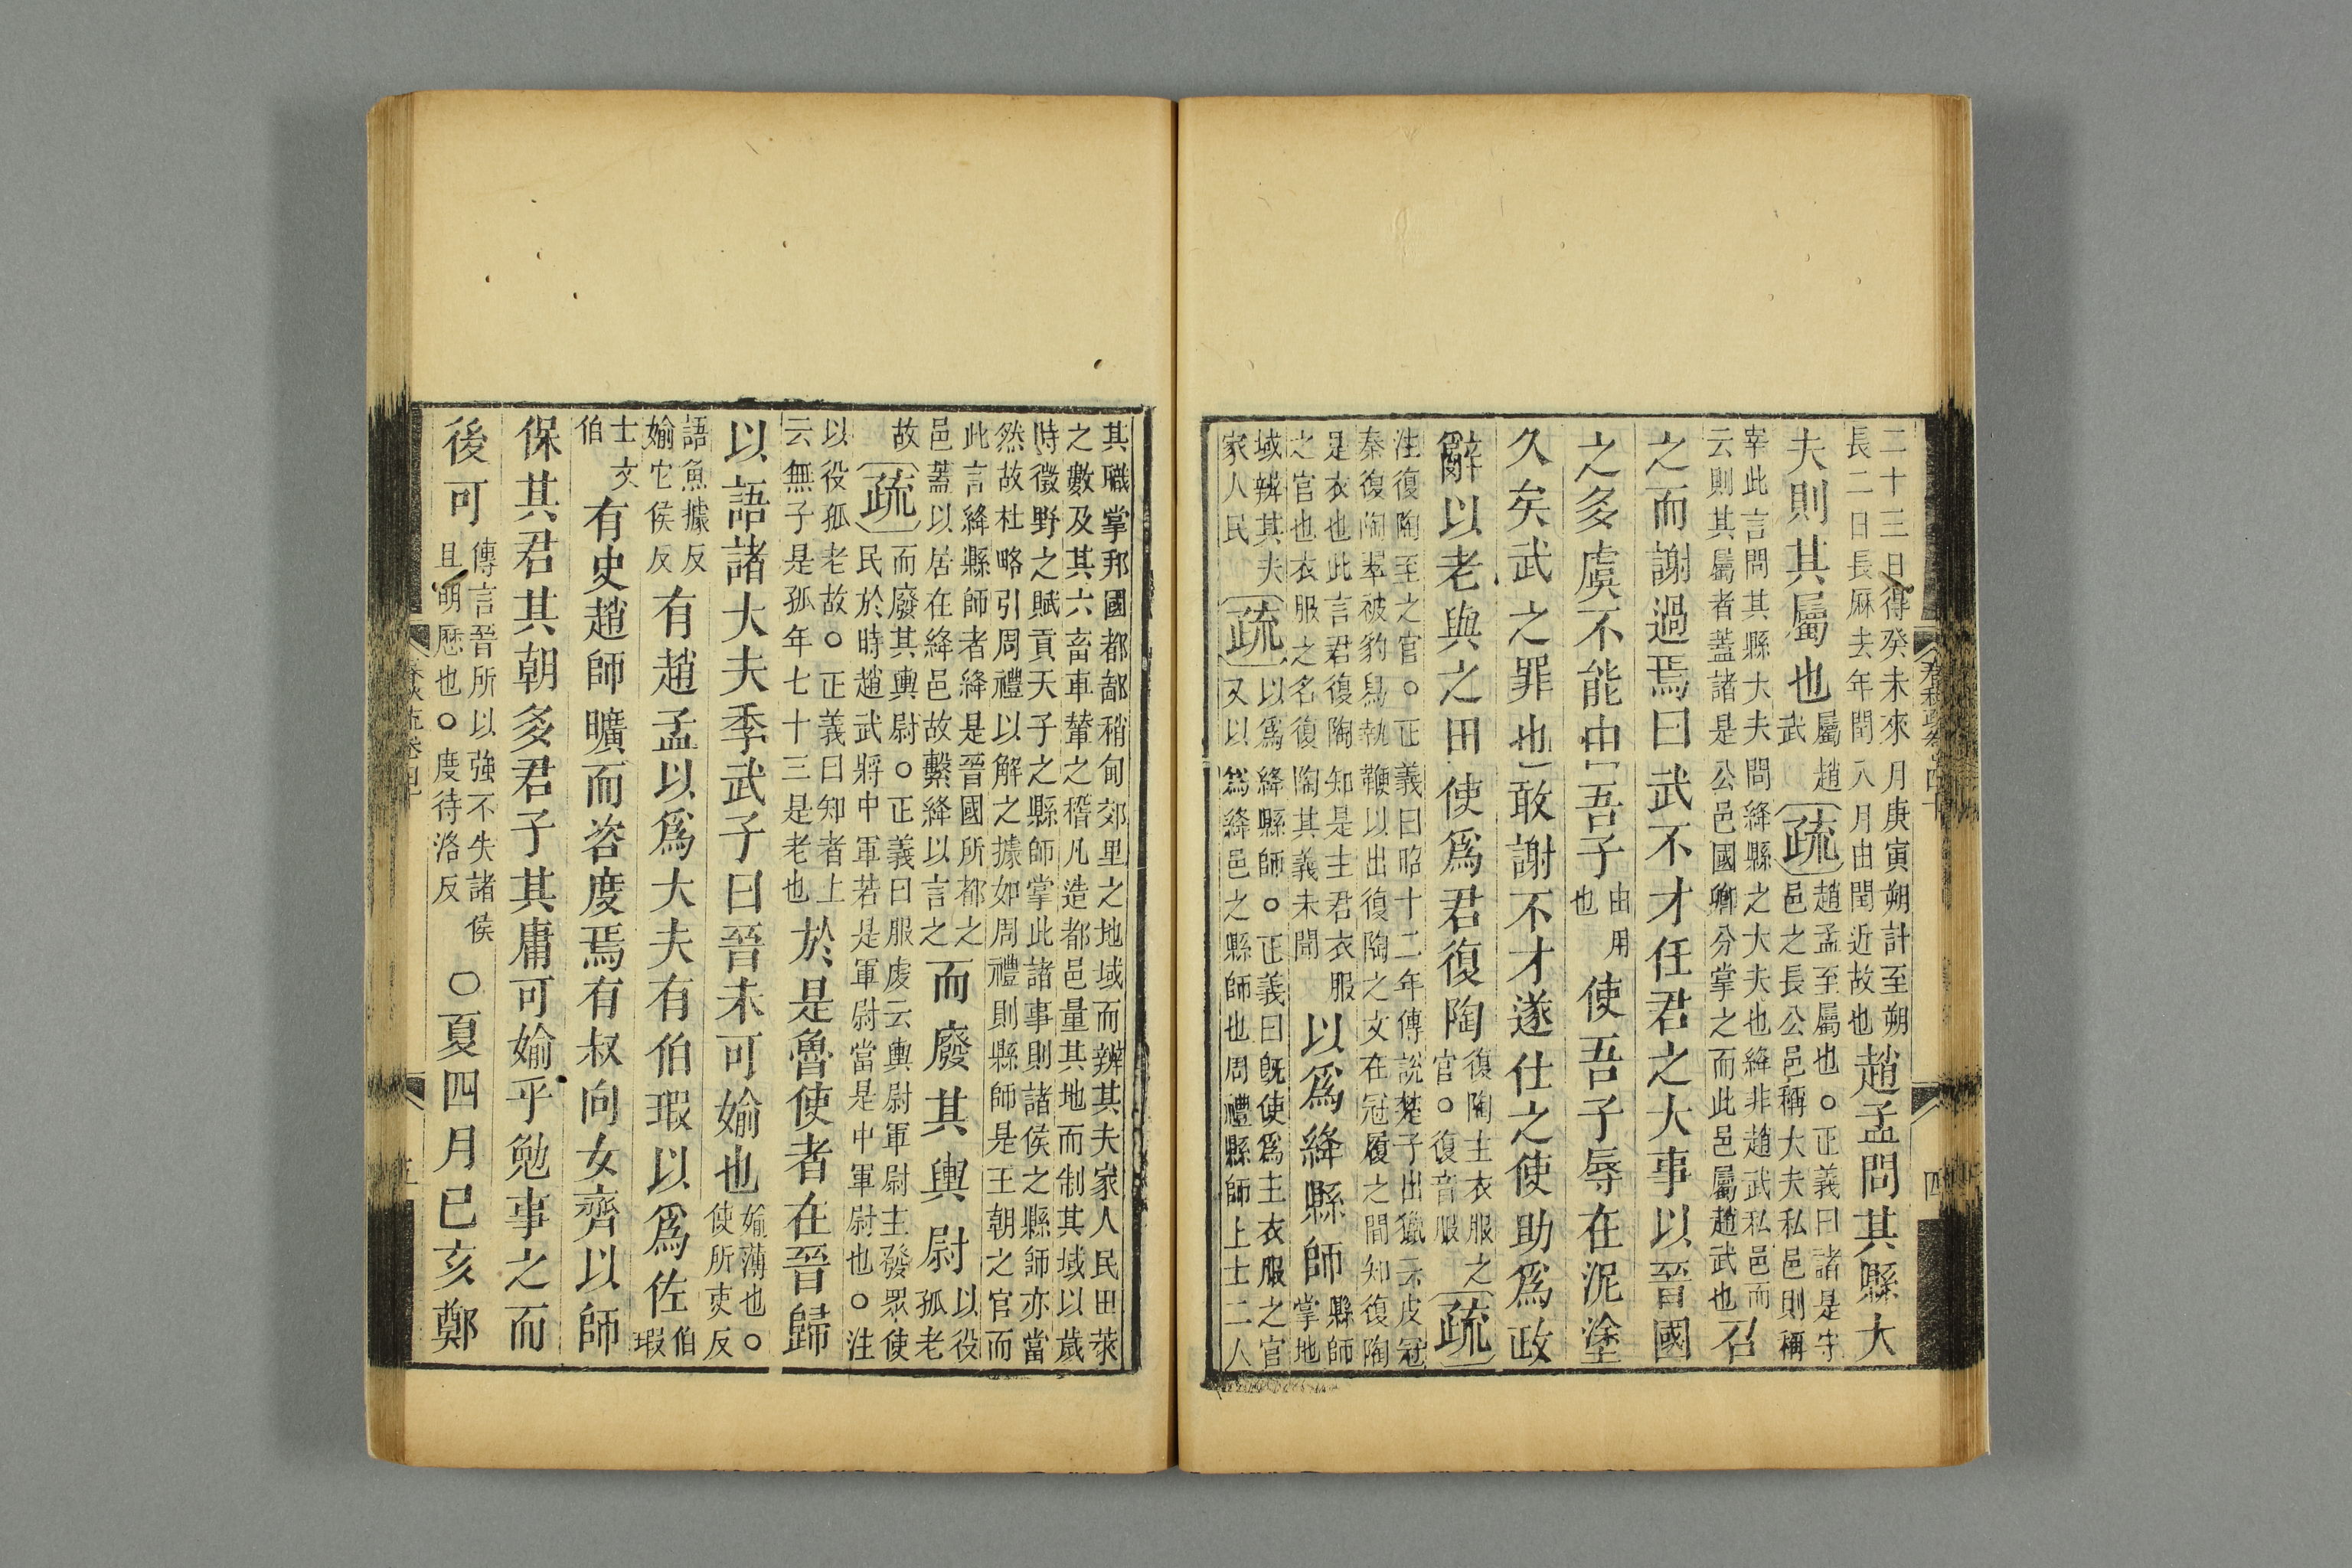 二十三日得癸未來月庚寅朔計至朔
長二日長厤去年閏八月由閏近故也趙孟問其縣大
夫則其屬也屬趙
武疏趙孟至屬也○正義曰諸是守
邑之長公邑稱大夫私邑則稱
宰此言問其縣大夫問絳縣之大夫也絳非趙武私邑而
云則其屬者蓋諸是公邑國卿分掌之而此邑屬趙武也召
之而謝過焉曰武不才任君之大事以晉國
之多虞不能由吾子由用
也使吾子辱在泥塗
久矣武之罪也敢謝不才遂仕之使助爲政
辭以老與之田使爲君復陶復陶主衣服之
官○復音服疏
注復陶至之官○正義曰昭十二年傳說楚子出獵云皮冠
秦復陶翠被豹舄執鞭以出復陶之文在冠履之間知復陶
是衣也此言君復陶知是主君衣服
之官也衣服之名復陶其義未聞以爲絳縣師縣師
掌地
域辨其夫
家人民疏以爲絳縣師○正義曰旣使爲主衣服之官
又以爲絳邑之縣師也周禮縣師上士二人
其職掌邦國都鄙稍甸郊里之地域而辨其夫家人民田萊
之數及其六畜車輦之稽凡造都邑量其地而制其域以歲
時徵野之賦貢天子之縣師掌此諸事則諸侯之縣師亦當
然故杜略引周禮以解之據如周禮則縣師是王朝之官而
此言絳縣師者絳是晉國所都之
邑蓋以居在絳邑故繫絳以言之而廢其輿尉以役
孤老
故疏而廢其輿尉○正義曰服虔云輿尉軍尉主發眾使
民於時趙武將中軍若是軍尉當是中軍尉也○注
以役孤老故○正義曰知者上
云無子是孤年七十三是老也於是魯使者在晉歸
以語諸大夫季武子曰晉未可媮也媮薄也○
使所吏反
語魚據反
媮它侯反有趙孟以爲大夫有伯瑕以爲佐伯
瑕
士文
伯有史趙師曠而咨度焉有叔向女齊以師
保其君其朝多君子其庸可媮乎勉事之而
後可傳言晉所以強不失諸侯
且明厤也○度待洛反○夏四月已亥鄭